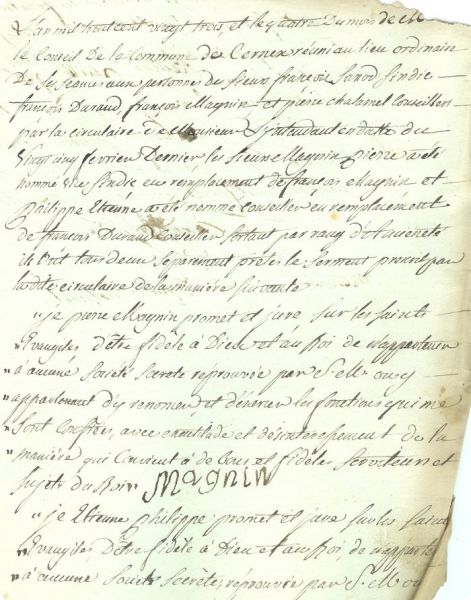 L'an mil huit cent vingt trois et le quatre Du mois de
le Conseil De la Commune de Cernex réuni au lieu ordinaire
De ses séances aux personnes du sieur françois Sindic
françois Duraud, françois Magnin et pierre chalamel Conseillers
par la circulaire de Monsieur L'intendant en datte du
Vingt cinq fevrier Dernier les sieurs Magnin pierre a été
nommé Vice Sindic en remplacement de françois Magnin et
philippe Etienne a été nommé Conseiller en remplacement
de françois Duraud Conseiller sortant par rang d'ancieneté
ils ont tous deux séparement prété le Serment prescrit par
ladite circulaire de la manière suivante
" je pierre Magnin promet et jure sur les saints
" Evangiles D'être fidèle à Dieu et au Roi de n'appartenir
" à aucune société Secrete réprouvée par S. M. ou y
" appartenant d'y renoncer et d'éxercer les fonctions qui me
" Sont Confiées, avec exactitude et désinteressement de la
" manière qui Convient à de bons et fidèles Serviteurs et
" Sujets du Roi Magnin
" je Etienne philippe promet et jure sur les Saints
" Evangiles, D'être fidèle à Dieu et au Roi, de n'apparte
" à aucune Société Secrète, réprouvée par S. M. ou